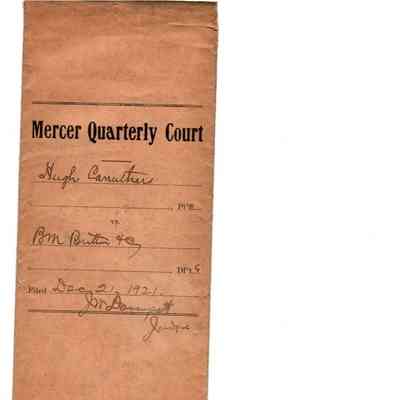 Mercer Quarterly Court
Hugh Carruthers
PI'ff.
vs.
BM Britton & Co
Dft.s
Filed Dec 21, 1921.
Judge